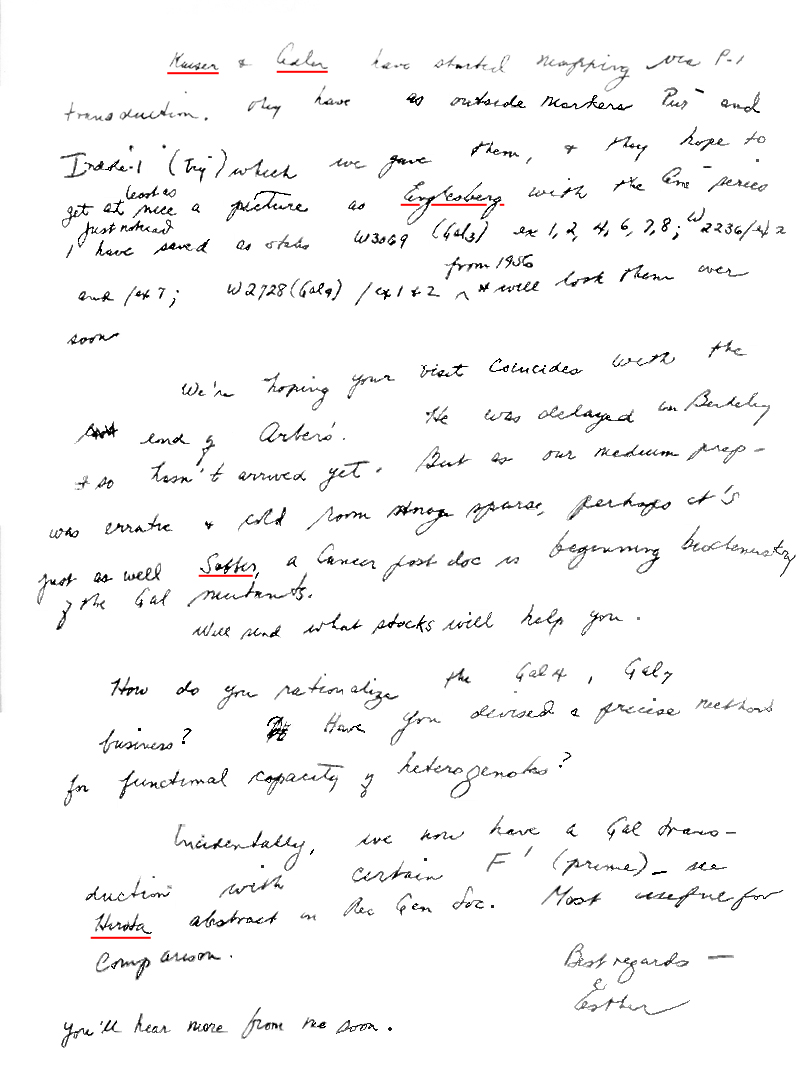 Kaiser & Adler have started mapping via P-1
transduction. They have as outside markers Pur⁻ and
Indole⁻1 (Try⁻) which we gave them, & they hope to
least as
get at nice a picture as Englesberg with the series
just noticed
I have saved as stabs W3069 (Gal3) ex 1, 2, 4, 6, 7, 8; W2236/ex 2
from 1956
and /ex 7; W2728 (Gal9) / ex 1 & 2 ^ & will look them over
soon
We're hoping your visit coincides with the
end of Arber's. He was delayed in Berkeley
& so hasn't arrived yet. But as our medium prep-
was erratic & cold room storage sparse, perhaps it's
just as well. a Cancer post doc is beginning biochemistry
of the Gal mutants.
Will send what stocks will help you.
How do you rationalize the Gal4, Gal7
business? Have you devised a precise method
for functional capacity of heterogenotes?
Incidentally, we now have a Gal trans-
duction with certain F' (prime) - see
Hirota abstract in Rec Gen Soc. Most useful for
comparison.
Best regards —
Esther
you'll hear more from me soon.